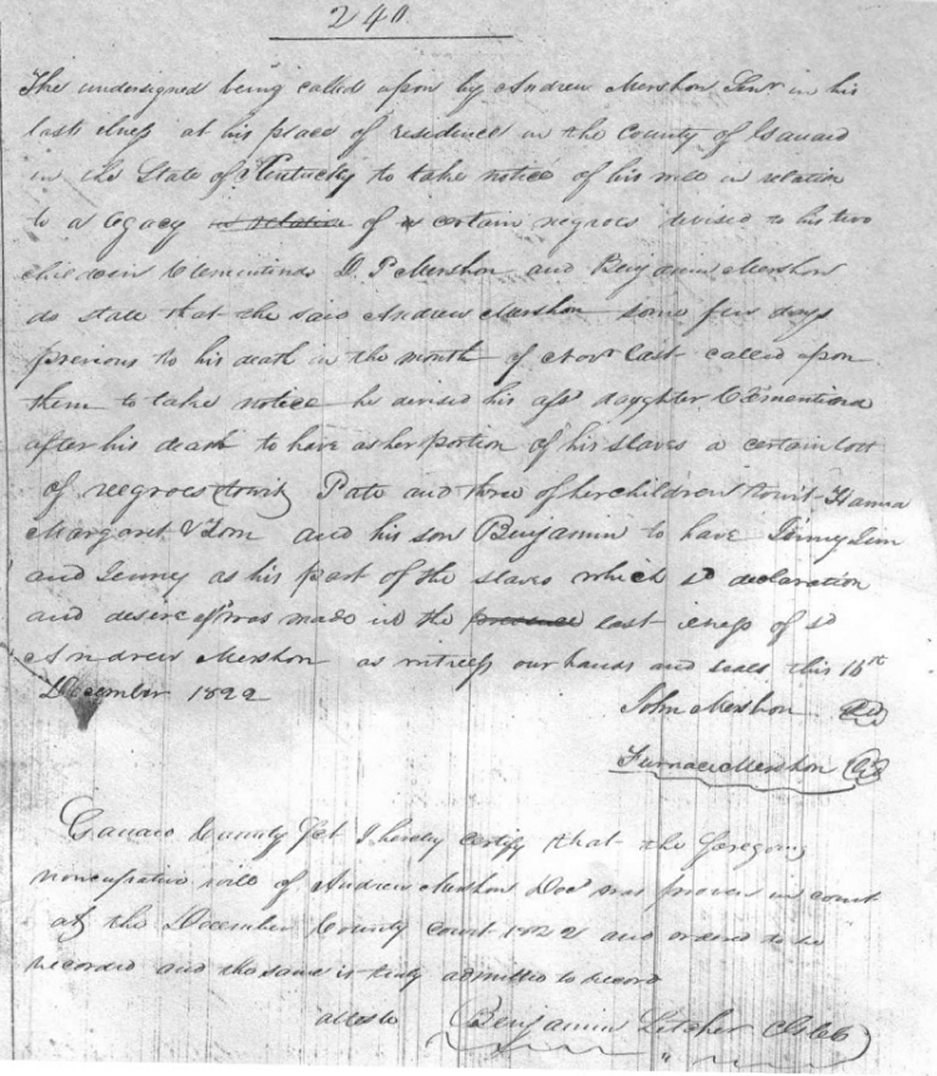 240
The undersigned being called upon by Andrew Mershon Senr in his
last ilness at his place of residence in the County of Garrard
in the State of Kentucky to take notice of his will in relation
to a legacy in relation of a certain negroes devised to his two
children Clementina D. P Mershon and Benjamin Mershon
do state that the said Andrew Mershon some few days
previous to his death in the month of Novr last called upon
them to take notice he devised his afsd daughter Clementiona
after his death to have as her portion of his slaves a certain lott
of negroes (towit) Pate and three of her children towit Hanna
Margaret & Tom and his son Benjamin to have Jim
and Jenney as his part of the slaves which sd declaration
and desire was made in the presence last ilness of sd
Andrew Mershon as witness our hands and seals this 16th
December 1822
John Mershon
Furnace Mershon
Garrard County Sct I hereby certify that the foregoing
noncupative will of Andrew Mershon Decd was proven in court
at the December County Court 1822 and ordered to be
recorded and the same is truly admitted to record
atteste Benjamin Letcher